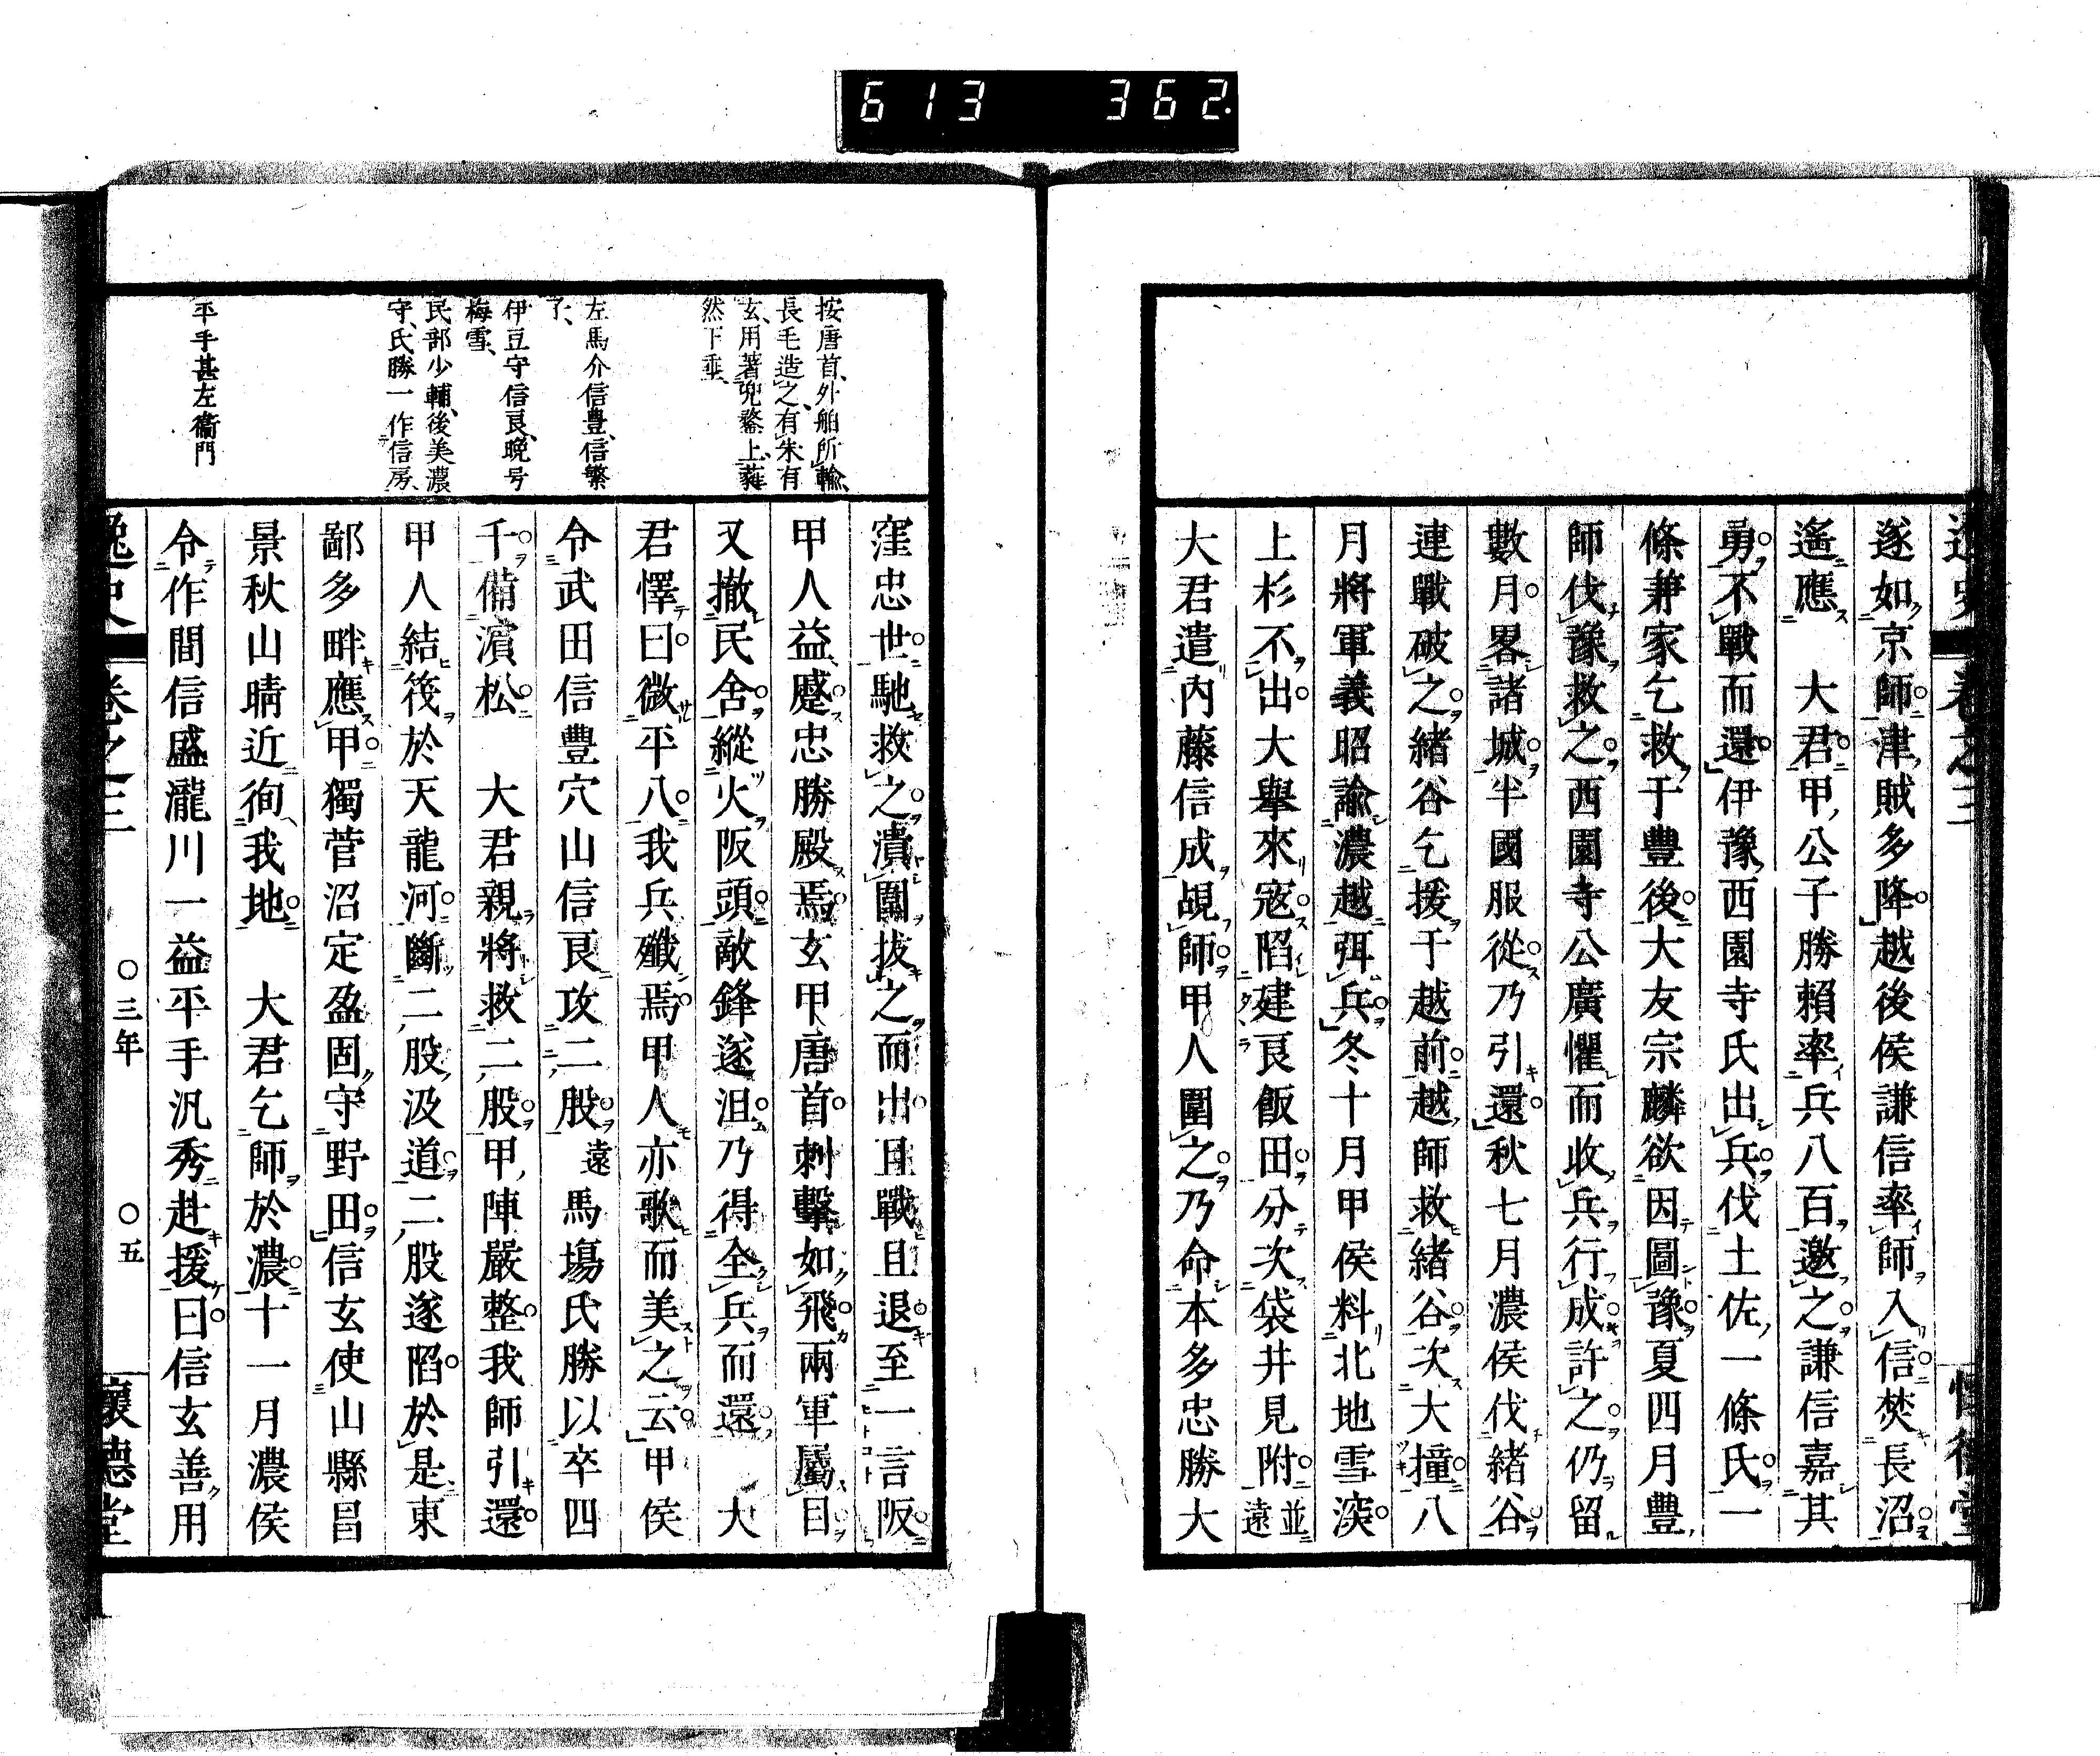 613 362
逸史 卷之三 懷德堂
遂如京師津賊多降越後侯謙信率師入信焚長沼
遙應 大君甲公子勝賴率兵八百邀之謙信嘉其
勇不戰而還伊豫西園寺氏出兵伐土佐一條氏一
條兼家乞救于豐後大友宗麟欲因圖豫夏四月豐
師伐豫救之西園寺公廣懼而收兵行成許之仍留
數月畧諸城半國服從乃引還秋七月濃侯伐緒谷
連戰破之緒谷乞援于越前越師救緒谷次大撞八
月將軍義昭諭濃越弭兵冬十月甲侯料北地雪深
上杉不出大擧來寇陷建良飯田分次袋井見附並遠
大君遣內藤信成覘師甲人圍之乃命本多忠勝大
窪忠世馳救之潰圍拔之而出且戰且退至一言阪
甲人益蹙忠勝殿焉玄甲唐首刺擊如飛兩軍屬目
又撤民舍縱火阪頭敵鋒遂沮乃得全兵而還 大
君懌曰微平八我兵殲焉甲人亦歌而美之云甲侯
令武田信豐穴山信良攻二股遠馬場氏勝以卒四
千備濱松 大君親將救二股甲陣嚴整我師引還
甲人結筏於天龍河斷二股汲道二股遂陷於是東
鄙多畔應甲獨菅沼定盈固守野田信玄使山縣昌
景秋山晴近徇我地 大君乞師於濃十一月濃侯
令作間信盛瀧川一益平手汎秀赴援曰信玄善用
逸史 卷之三 ○三年 ○五 懷德堂
按唐首、外舶所輸、
長毛造之、有朱有
玄、用著兜鍪上、蕤
然下垂、
左馬介信豐、信繁
子、
伊豆守信良、晩号
梅雪、
民部少輔、後美濃
守、氏勝一作信房、
平手甚左衞門